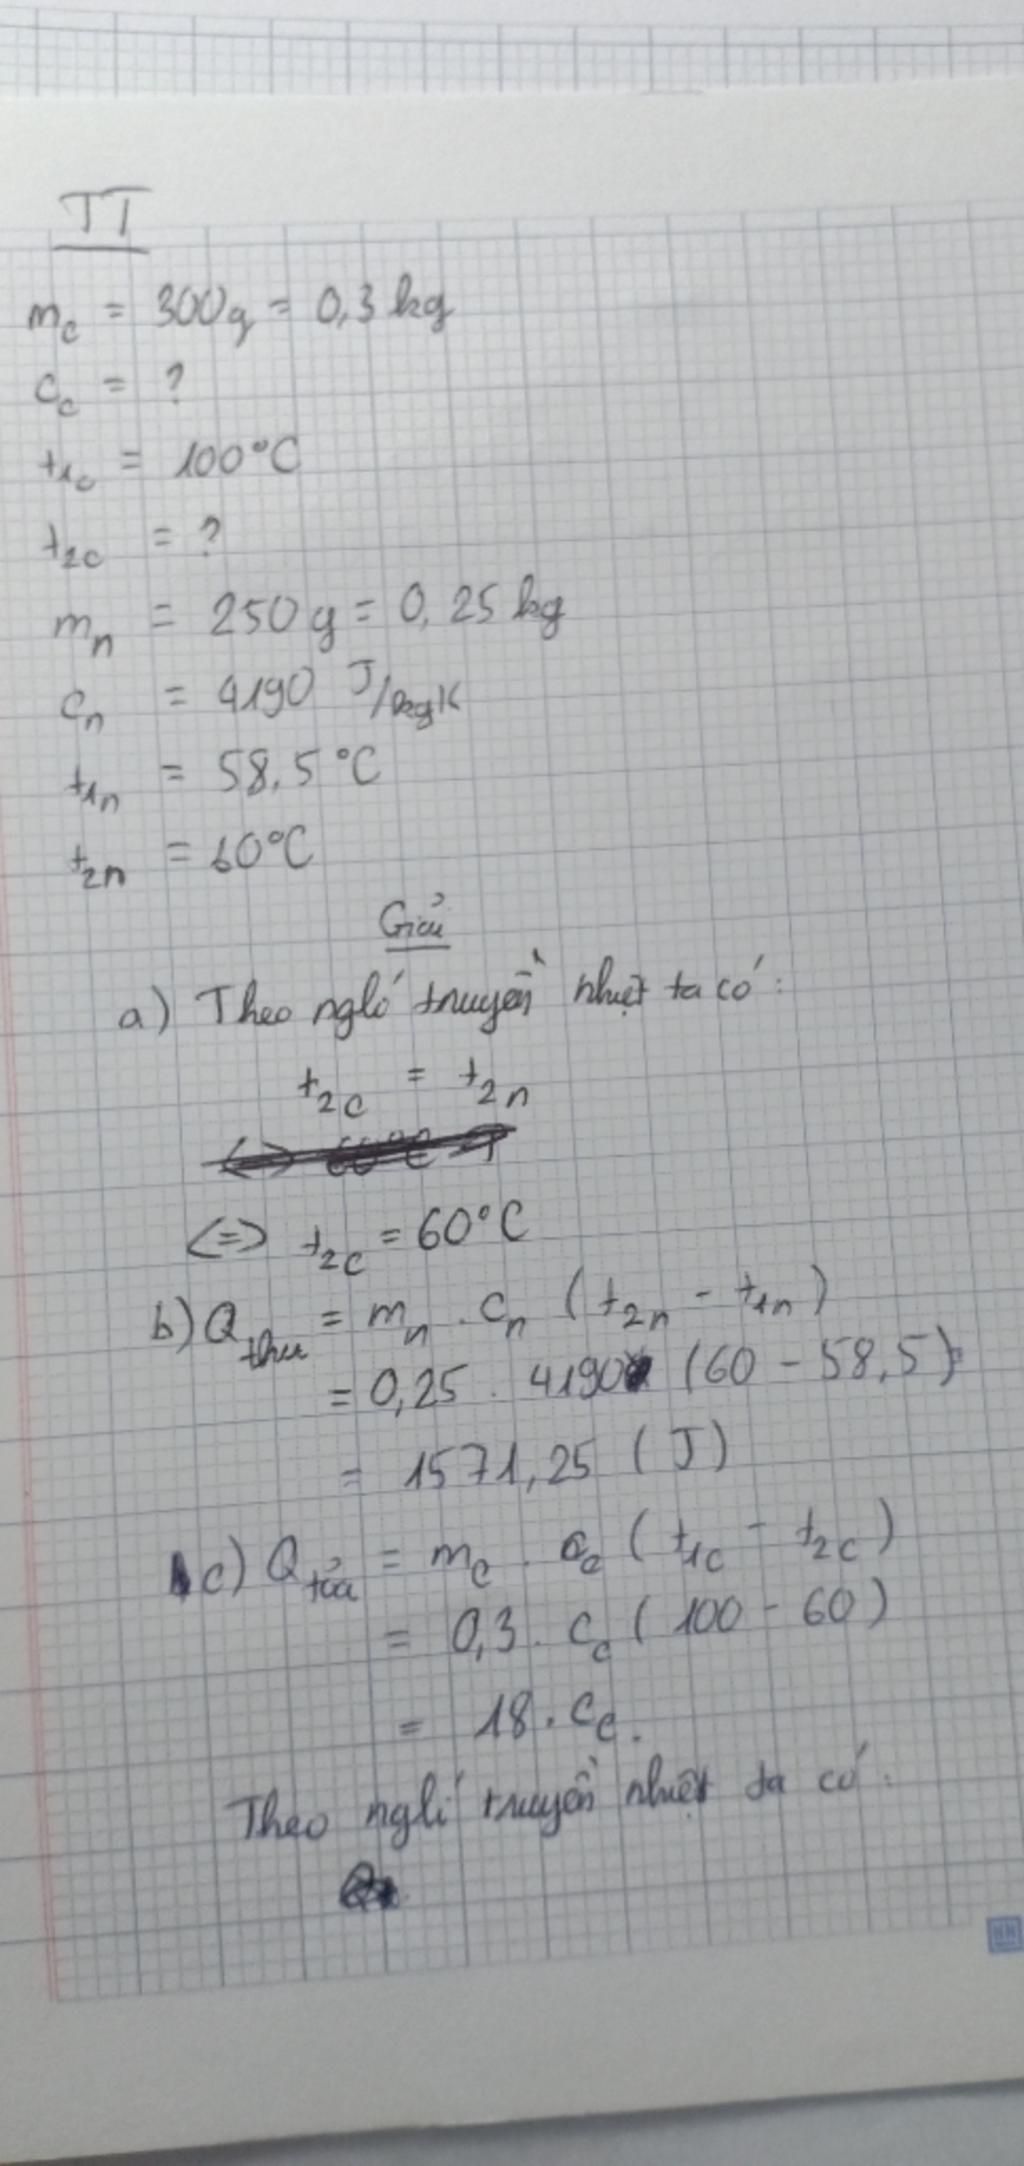 TT
m_c = 300g = 0,3 kg
c_c = ?
t_1c = 100°C
t_2c = ?
m_n = 250g = 0,25 kg
c_n = 4190 J/kgK
t_1n = 58,5°C
t_2n = 60°C
Giải
a) Theo nglí truyền nhiệt ta có:
t_2c = t_2n
<=> t_2c = 60°C
b) Q_thu = m_n . c_n (t_2n - t_1n)
= 0,25 . 4190 (60 - 58,5)
= 1571,25 (J)
c) Q_tỏa = m_c . c_c (t_1c - t_2c)
= 0,3 . c_c (100 - 60)
= 18 . c_c.
Theo nglí truyền nhiệt ta có: